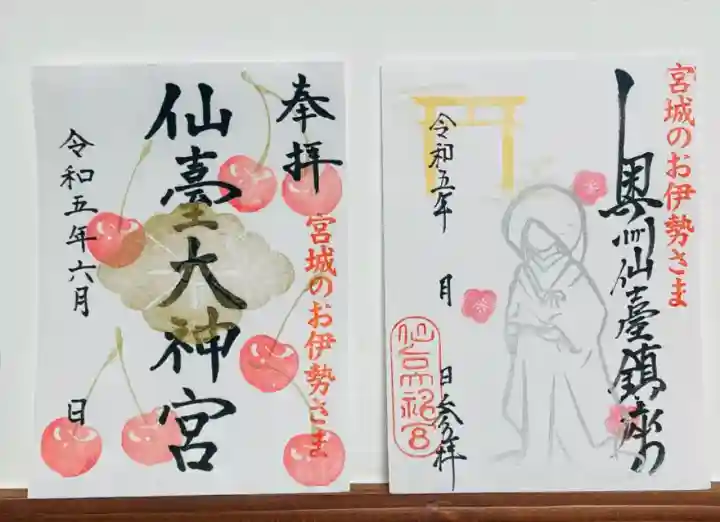 奉拝
宮城のお伊勢さま
仙臺大神宮
令和五年六月
日
宮城のお伊勢さま
奥州仙臺鎮座
令和五年
月
日参拝